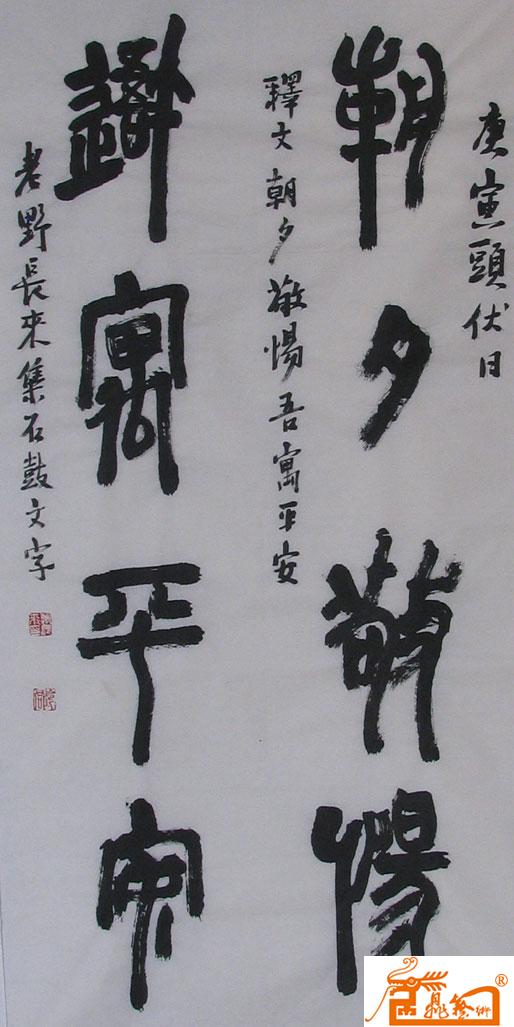 庚寅頭伏日
朝夕敬惕
釋文朝夕敬惕吾寓平安
吾寓平安
老野長來集石鼓文字